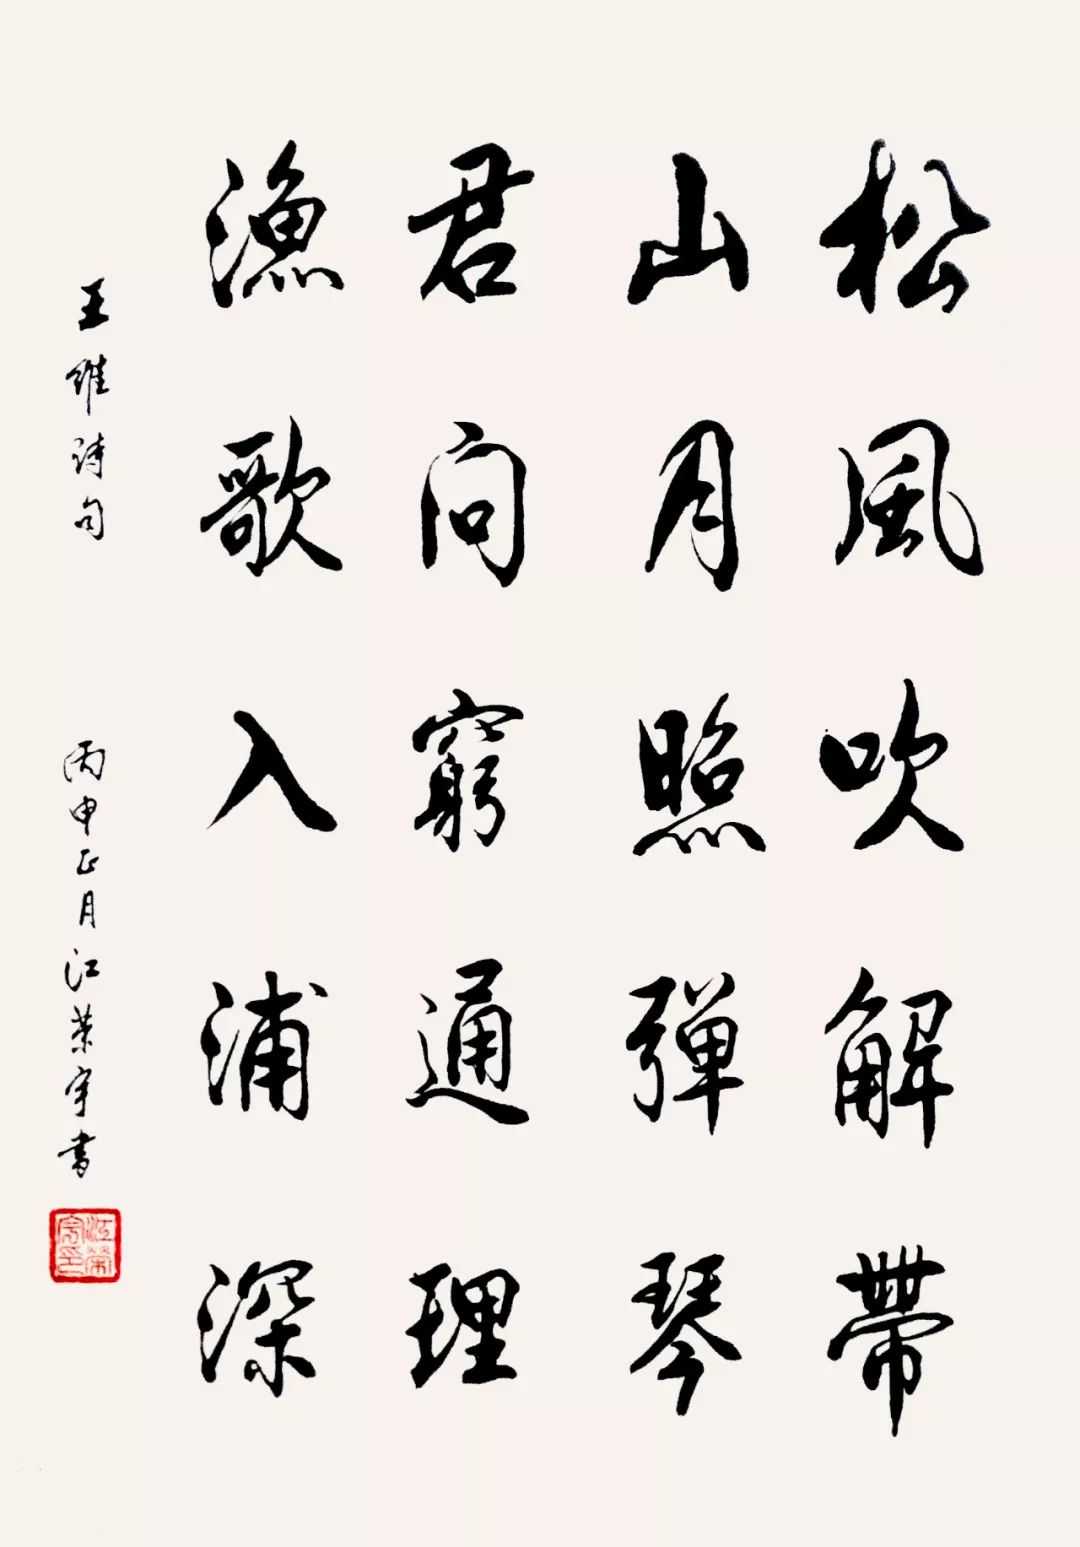 松風吹解帶
山月照彈琴
君问窮通理
漁歌入浦深
王維詩句
丙申正月江荣宇书
江榮宇印